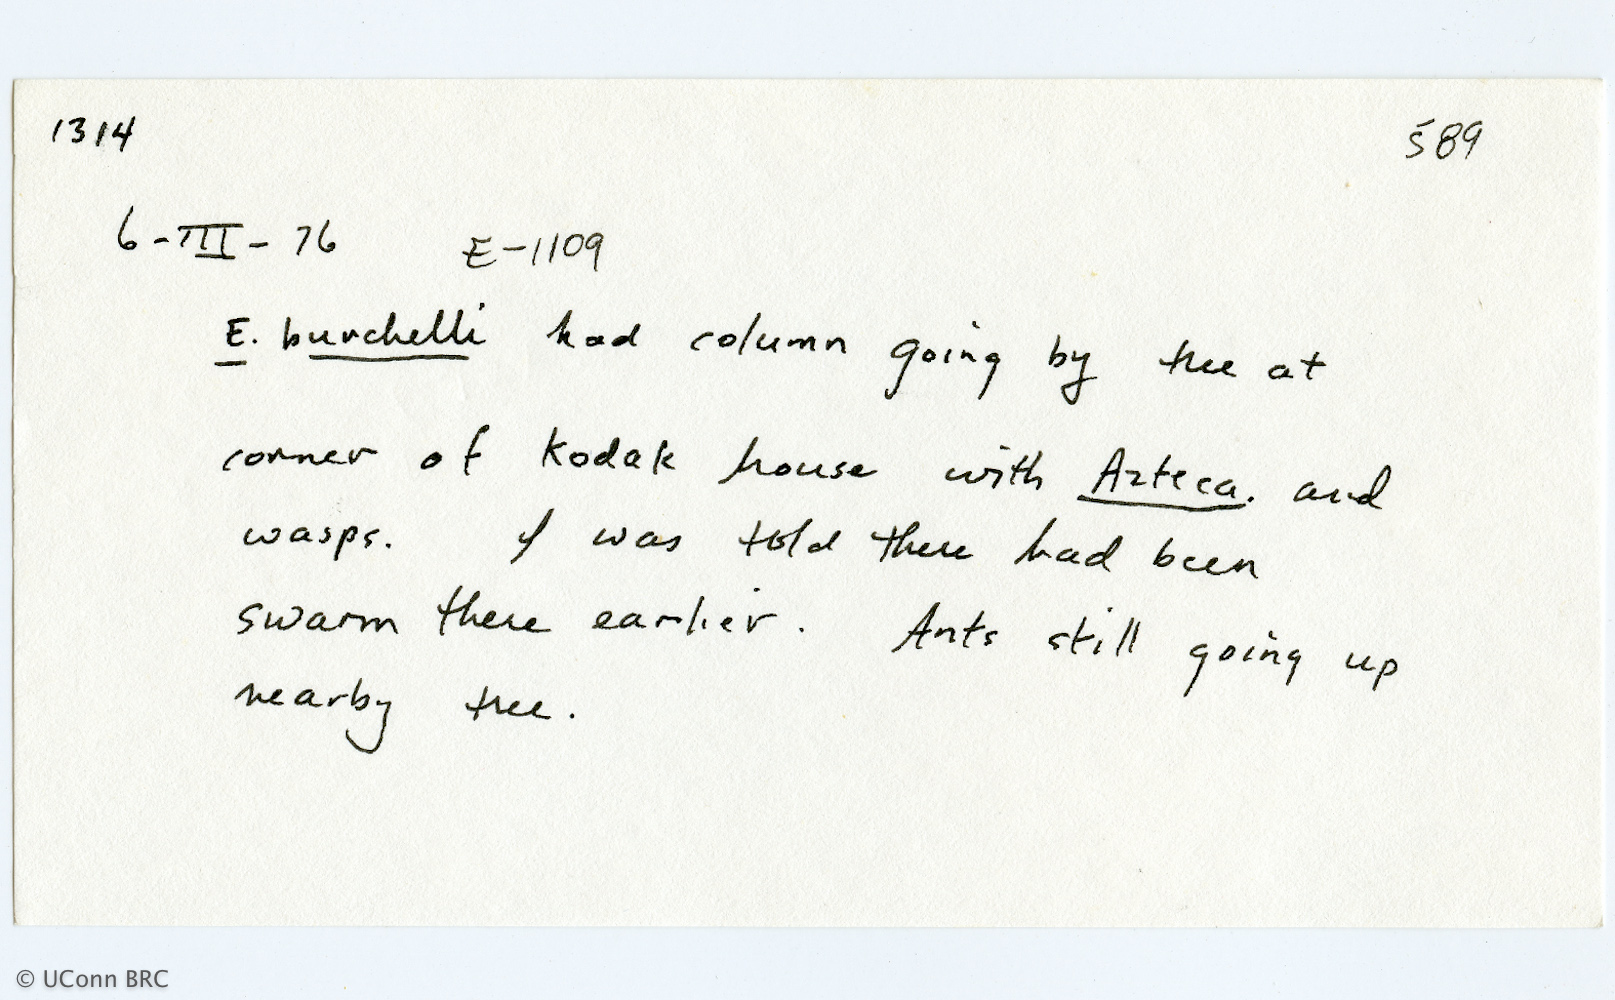 1314 589
6-III-76 E-1109
E. burchelli had column going by tree at
corner of Kodak house with Azteca. and
wasps. I was told there had been
swarm there earlier. Ants still going up
nearby tree.
© UConn BRC